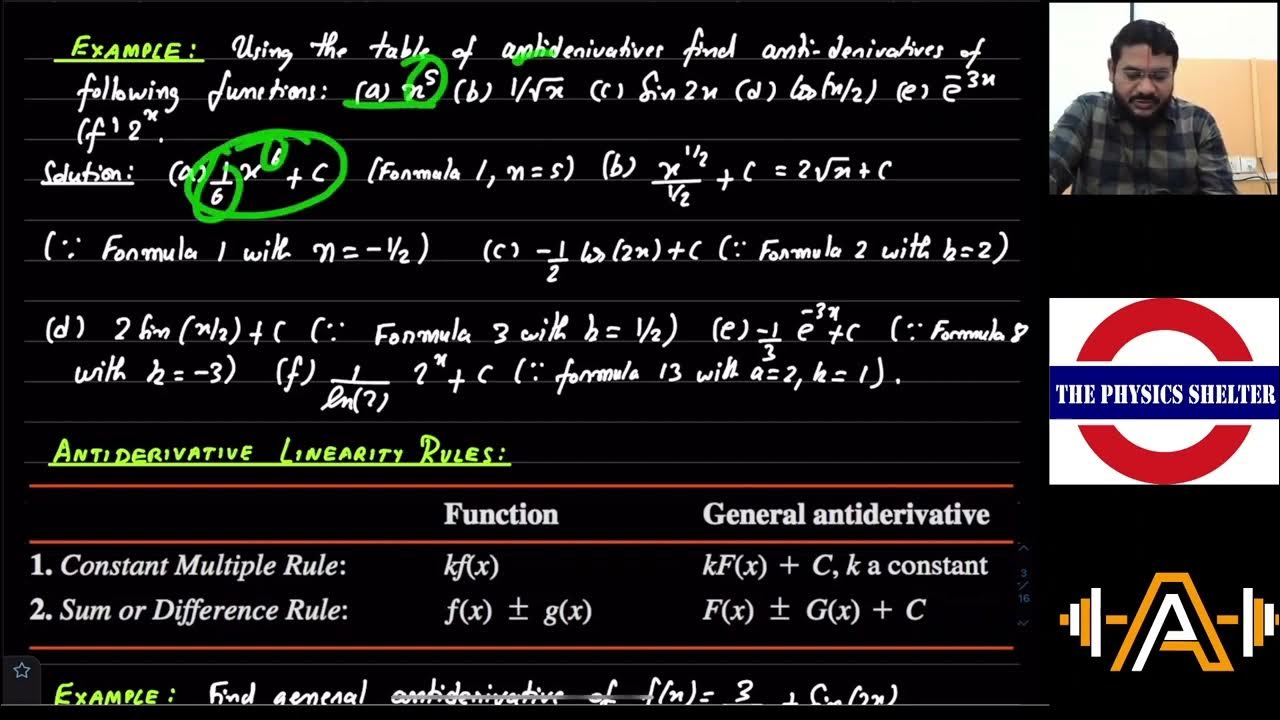 EXAMPLE: Using the table of antiderivatives find anti-derivatives of
following functions: (a) x⁵ (b) 1/√x (c) Sin 2x (d) Cos(x/2) (e) e⁻³ˣ
(f) 2ˣ.
Solution: (a) 1/6 x⁶ + C (Formula 1, n=5) (b) x^(1/2)/(1/2) + C = 2√x + C
(∵ Formula 1 with n = -1/2) (c) -1/2 Cos(2x) + C (∵ Formula 2 with k=2)
(d) 2 Sin(x/2) + C (∵ Formula 3 with k = 1/2) (e) -1/3 e⁻³ˣ + C (∵ Formula 8
with k = -3) (f) 1/ln(2) 2ˣ + C (∵ formula 13 with a=2, k=1).
ANTIDERIVATIVE LINEARITY RULES:
Function General antiderivative
1. Constant Multiple Rule: kf(x) kF(x) + C, k a constant
2. Sum or Difference Rule: f(x) ± g(x) F(x) ± G(x) + C
EXAMPLE: Find general antiderivative of f(x) = 3 + Sin(2x)
THE PHYSICS SHELTER
A
3
16